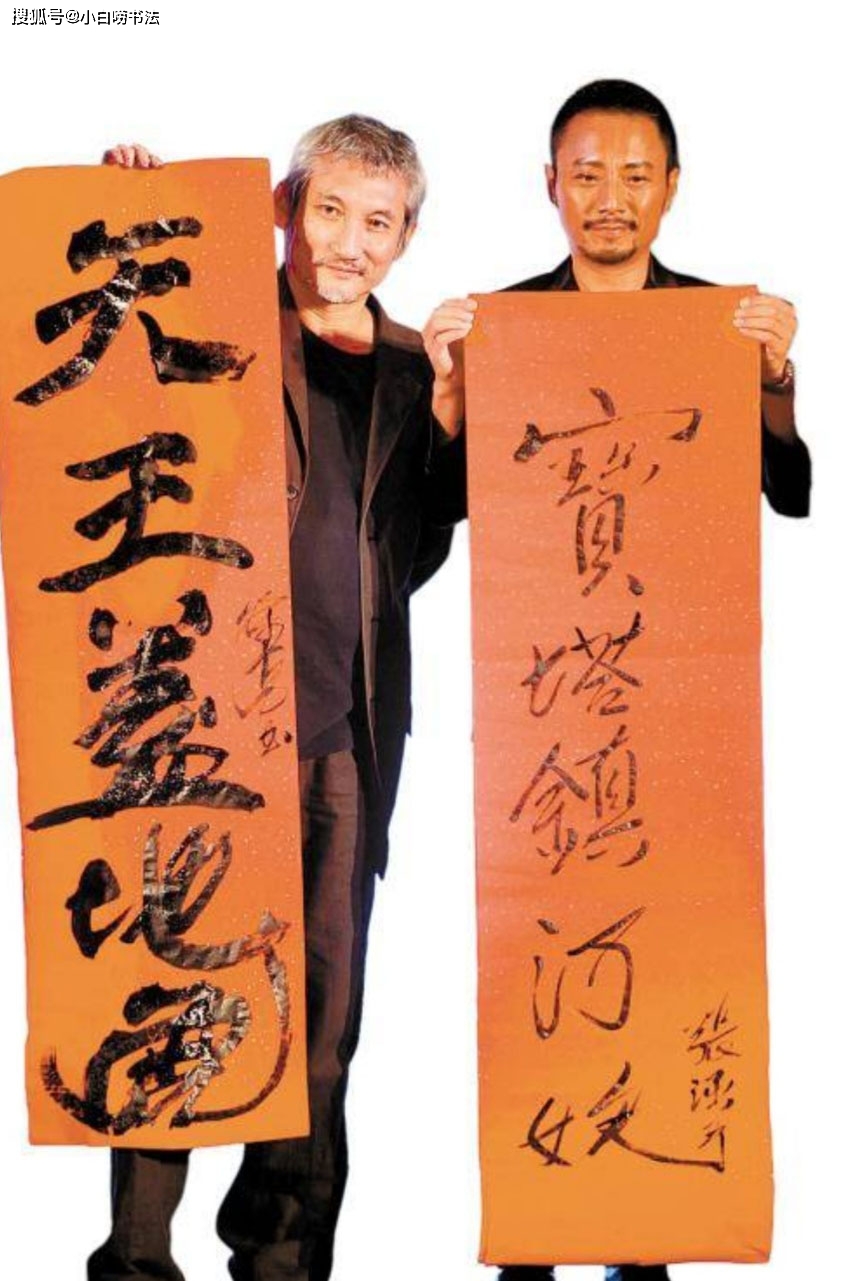 搜狐号@小白唠书法
天王蓋地
寶塔鎮河妖
張涵予